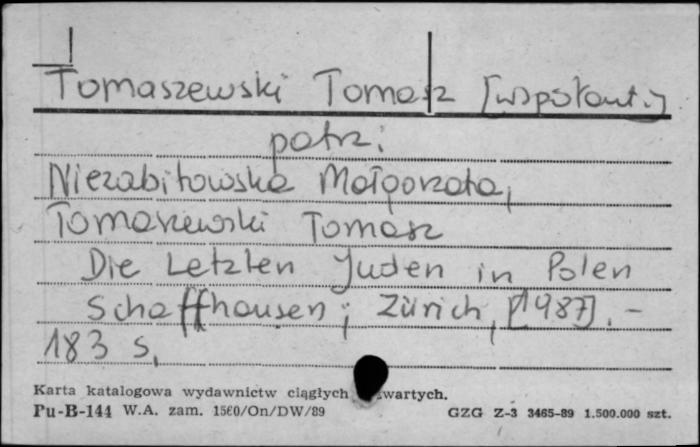 Tomaszewski Tomasz [współaut.]
patrz:
Niezabitowska Małgorzata,
Tomaszewski Tomasz
Die Letzten Juden in Polen
Schaffhausen; Zürich, [1987]. –
183 s.
Karta katalogowa wydawnictw ciągłych zwartych.
Pu-B-144 W.A. zam. 1560/On/DW/89 GZG Z-3 3465-89 1.500.000 szt.